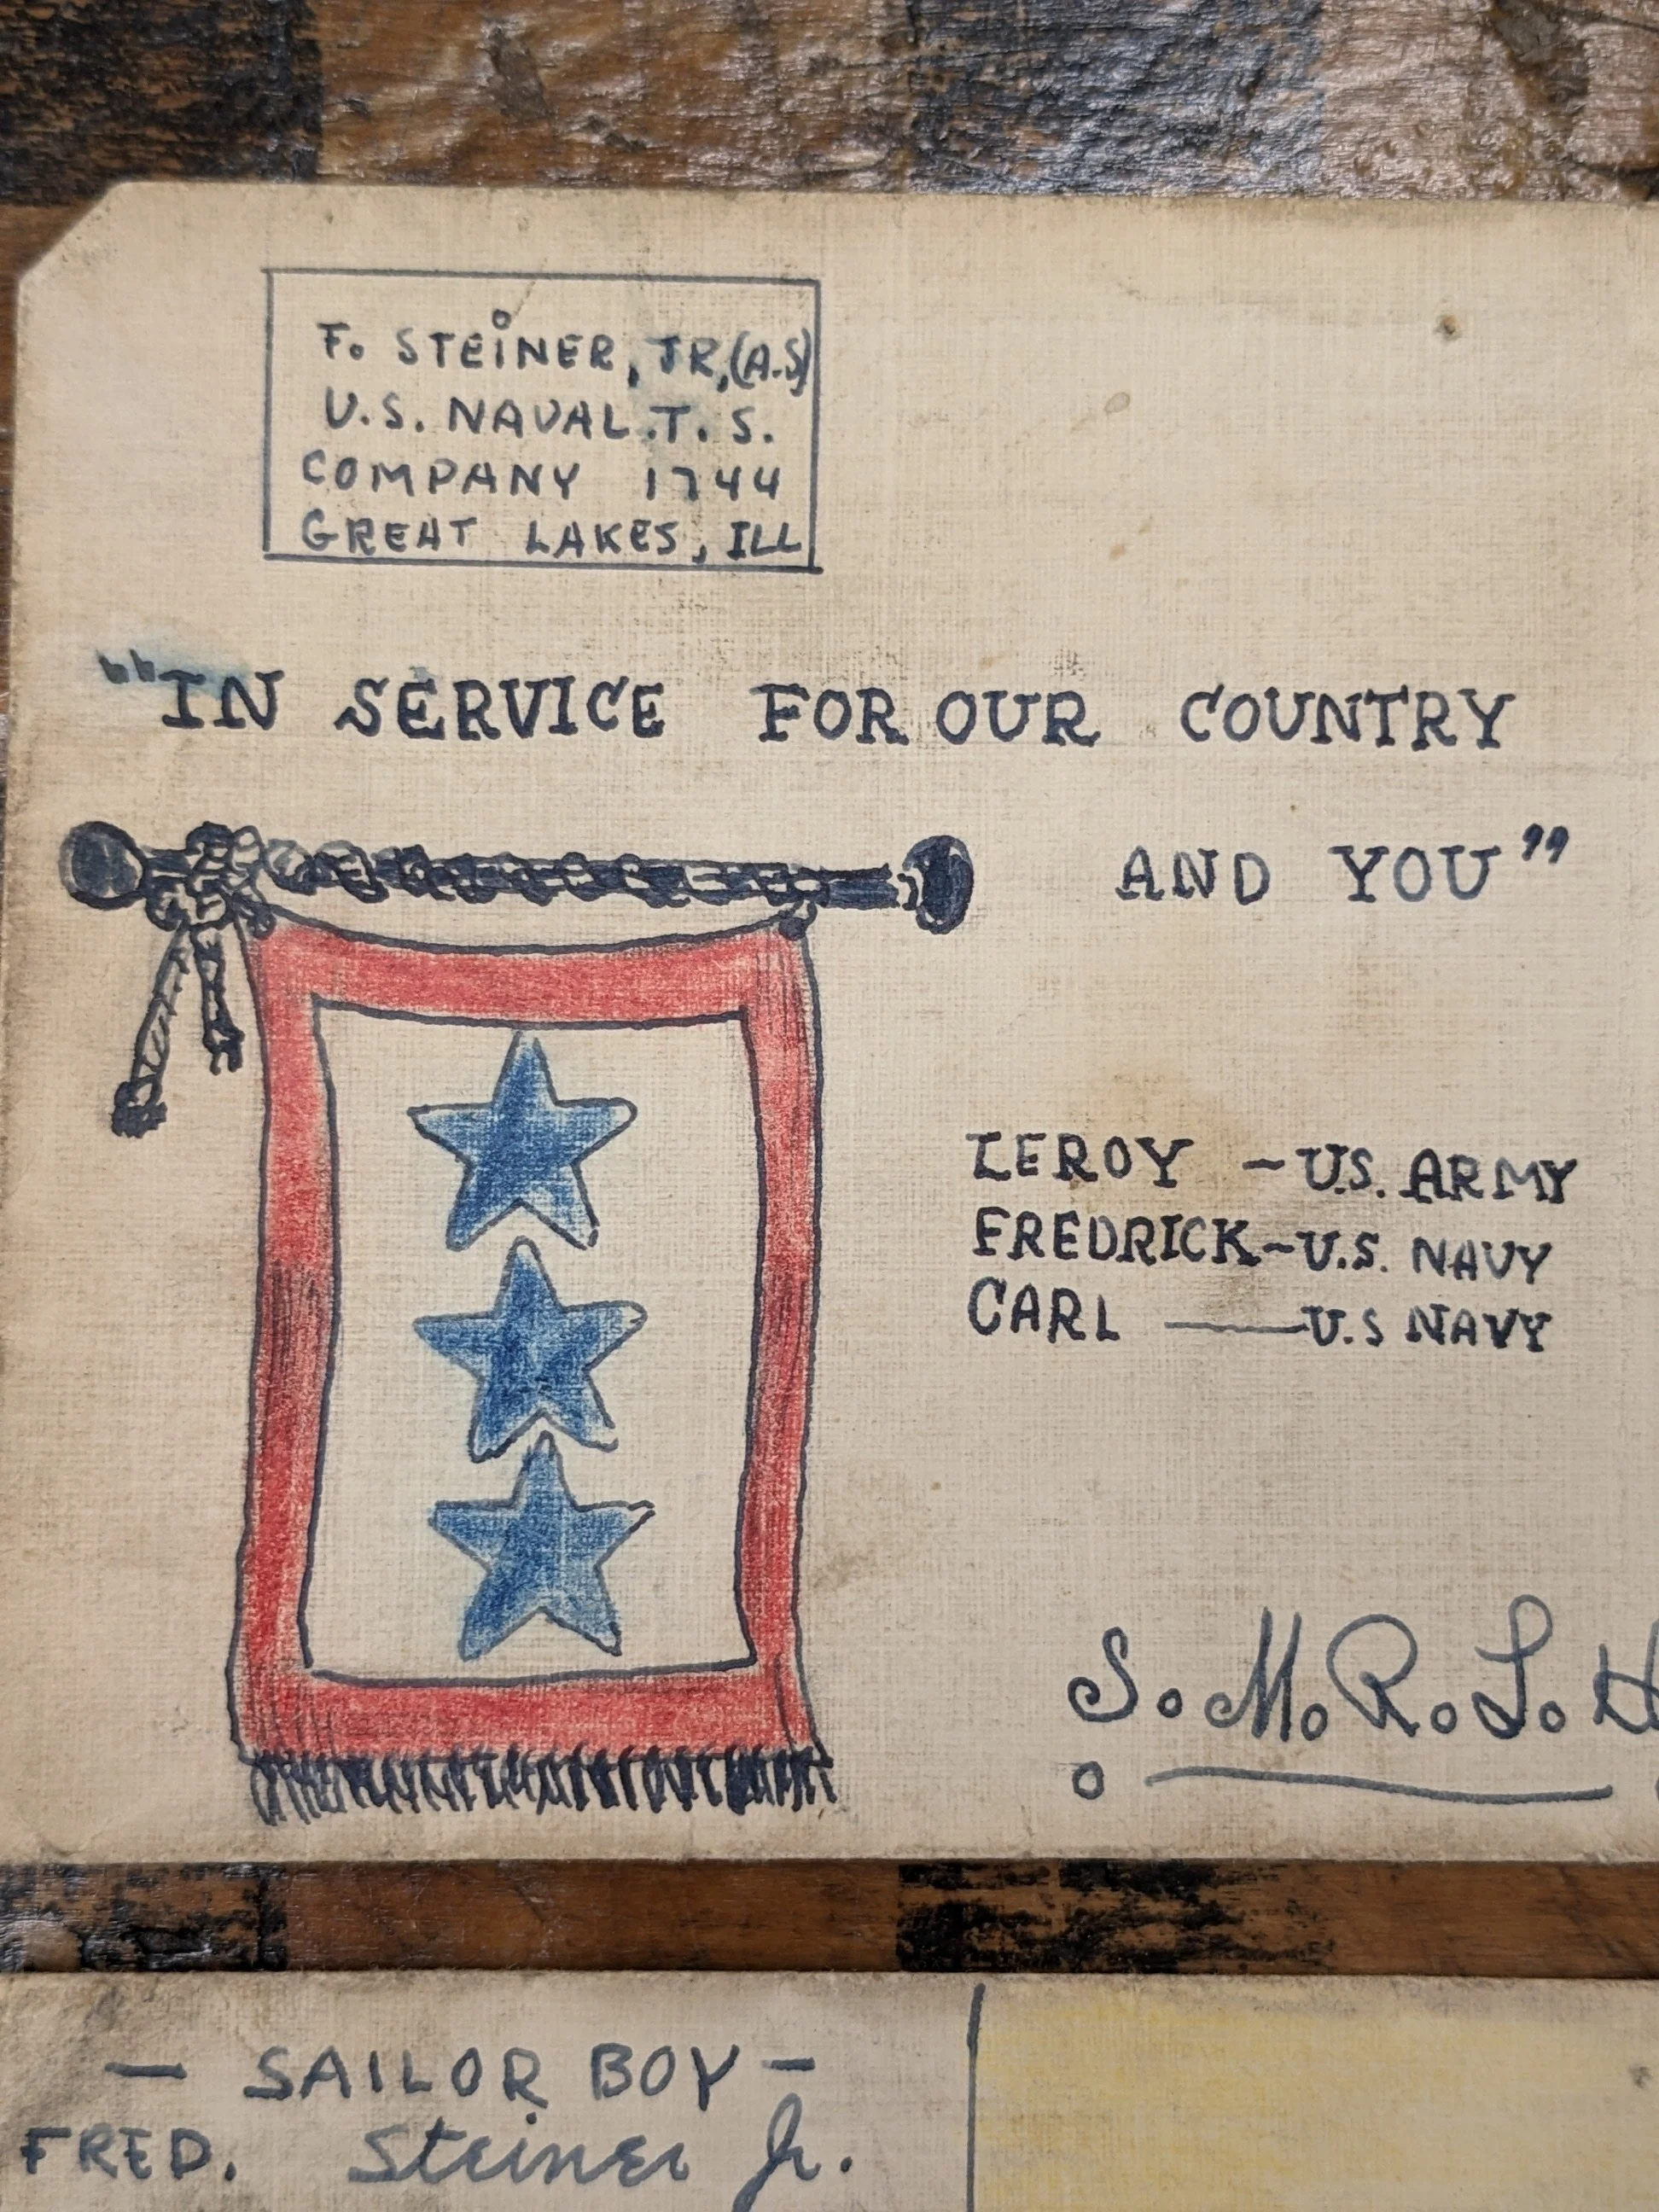 F. STEINER, JR, (A.S)
U.S. NAVAL T. S.
COMPANY 1744
GREAT LAKES, ILL
"IN SERVICE FOR OUR COUNTRY
AND YOU"
LEROY - U.S. ARMY
FREDRICK - U.S. NAVY
CARL — U.S NAVY
S. M. R. L. H
- SAILOR BOY -
FRED. Steiner Jr.